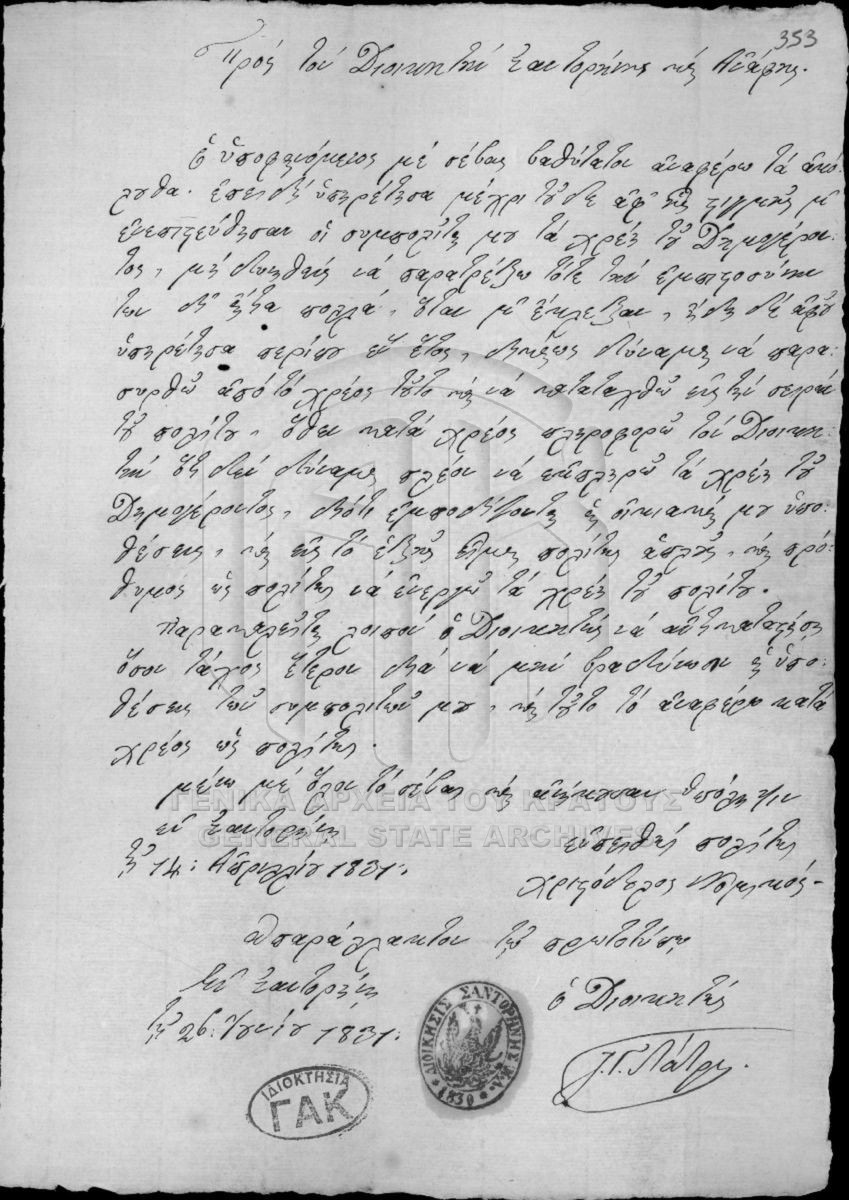 353
Πρός τόν Διοικητήν Σαντορήνης καί Ἀνάφης.
Ὁ ὑποφαινόμενος μέ σέβας βαθύτατον ἀναφέρω τά ἀκό-
λουθα. ἐπειδή ὑπηρέτησα μέχρι τοῦδε ἀφ' ἧς στιγμῆς μ'
ἐνεπιστεύθησαν οἱ συμπολῖται μου τά χρέη τοῦ Δημογέρον-
τος, μή δυνηθείς νά παρατρέξω τότε τήν ἐμπιστοσύνην
των δι' αἴτια πολλά, ὅταν μ' ἔκλεξαν, ἤδη δέ ἀφοῦ
ὑπηρέτησα περίπου ἕν ἔτος, δικαίως δύναμαι νά παρα-
συρθῶ ἀπό τό χρέος τοῦτο καί νά καταταχθῶ εἰς τήν σειράν
τοῦ πολίτου, ὅθεν κατά χρέος πληροφορῶ τόν Διοικη-
τήν ὅτι δέν δύναμαι πλέον νά ἐκπληρῶ τά χρέη τοῦ
Δημογέροντος, διότι ἐμποδίζονται αἱ οἰκιακαί μου ὑπο-
θέσεις, καί εἰς τό ἑξῆς εἶμαι πολίτης ἁπλοῦς, καί πρό-
θυμος ὡς πολίτης νά ἐνεργῶ τά χρέη τοῦ πολίτου.
Παρακαλεῖται λοιπόν ὁ Διοικητής νά ἀντικαταστήσῃ
ὅσον τάχος ἕτερον διά νά μήν βραδύνωσιν αἱ ὑπο-
θέσεις τῶν συμπολιτῶν μου, καί τοῦτο τό ἀναφέρω κατά
χρέος ὡς πολίτης.
μένω μέ ὅλον τό σέβας καί ἀνήκουσαν ὑπόληψιν
ἐν Σαντορήνῃ
εὐπειθής πολίτης
τῇ 14: Ἀπριλλίου 1831:
Χριστόδουλος
ἀπαράλλακτον τῷ πρωτοτύπῳ
Ἐν Σαντορήνῃ
ὁ Διοικητής
τῇ 26: Ἰουνίου 1831:
ΔΙΟΙΚΗΣΙΣ ΣΑΝΤΟΡΗΝΗΣ
1830
ΙΔΙΟΚΤΗΣΙΑ
ΓΑΚ
ΓΕΝΙΚΑ ΑΡΧΕΙΑ ΤΟΥ ΚΡΑΤΟΥΣ
GENERAL STATE ARCHIVES